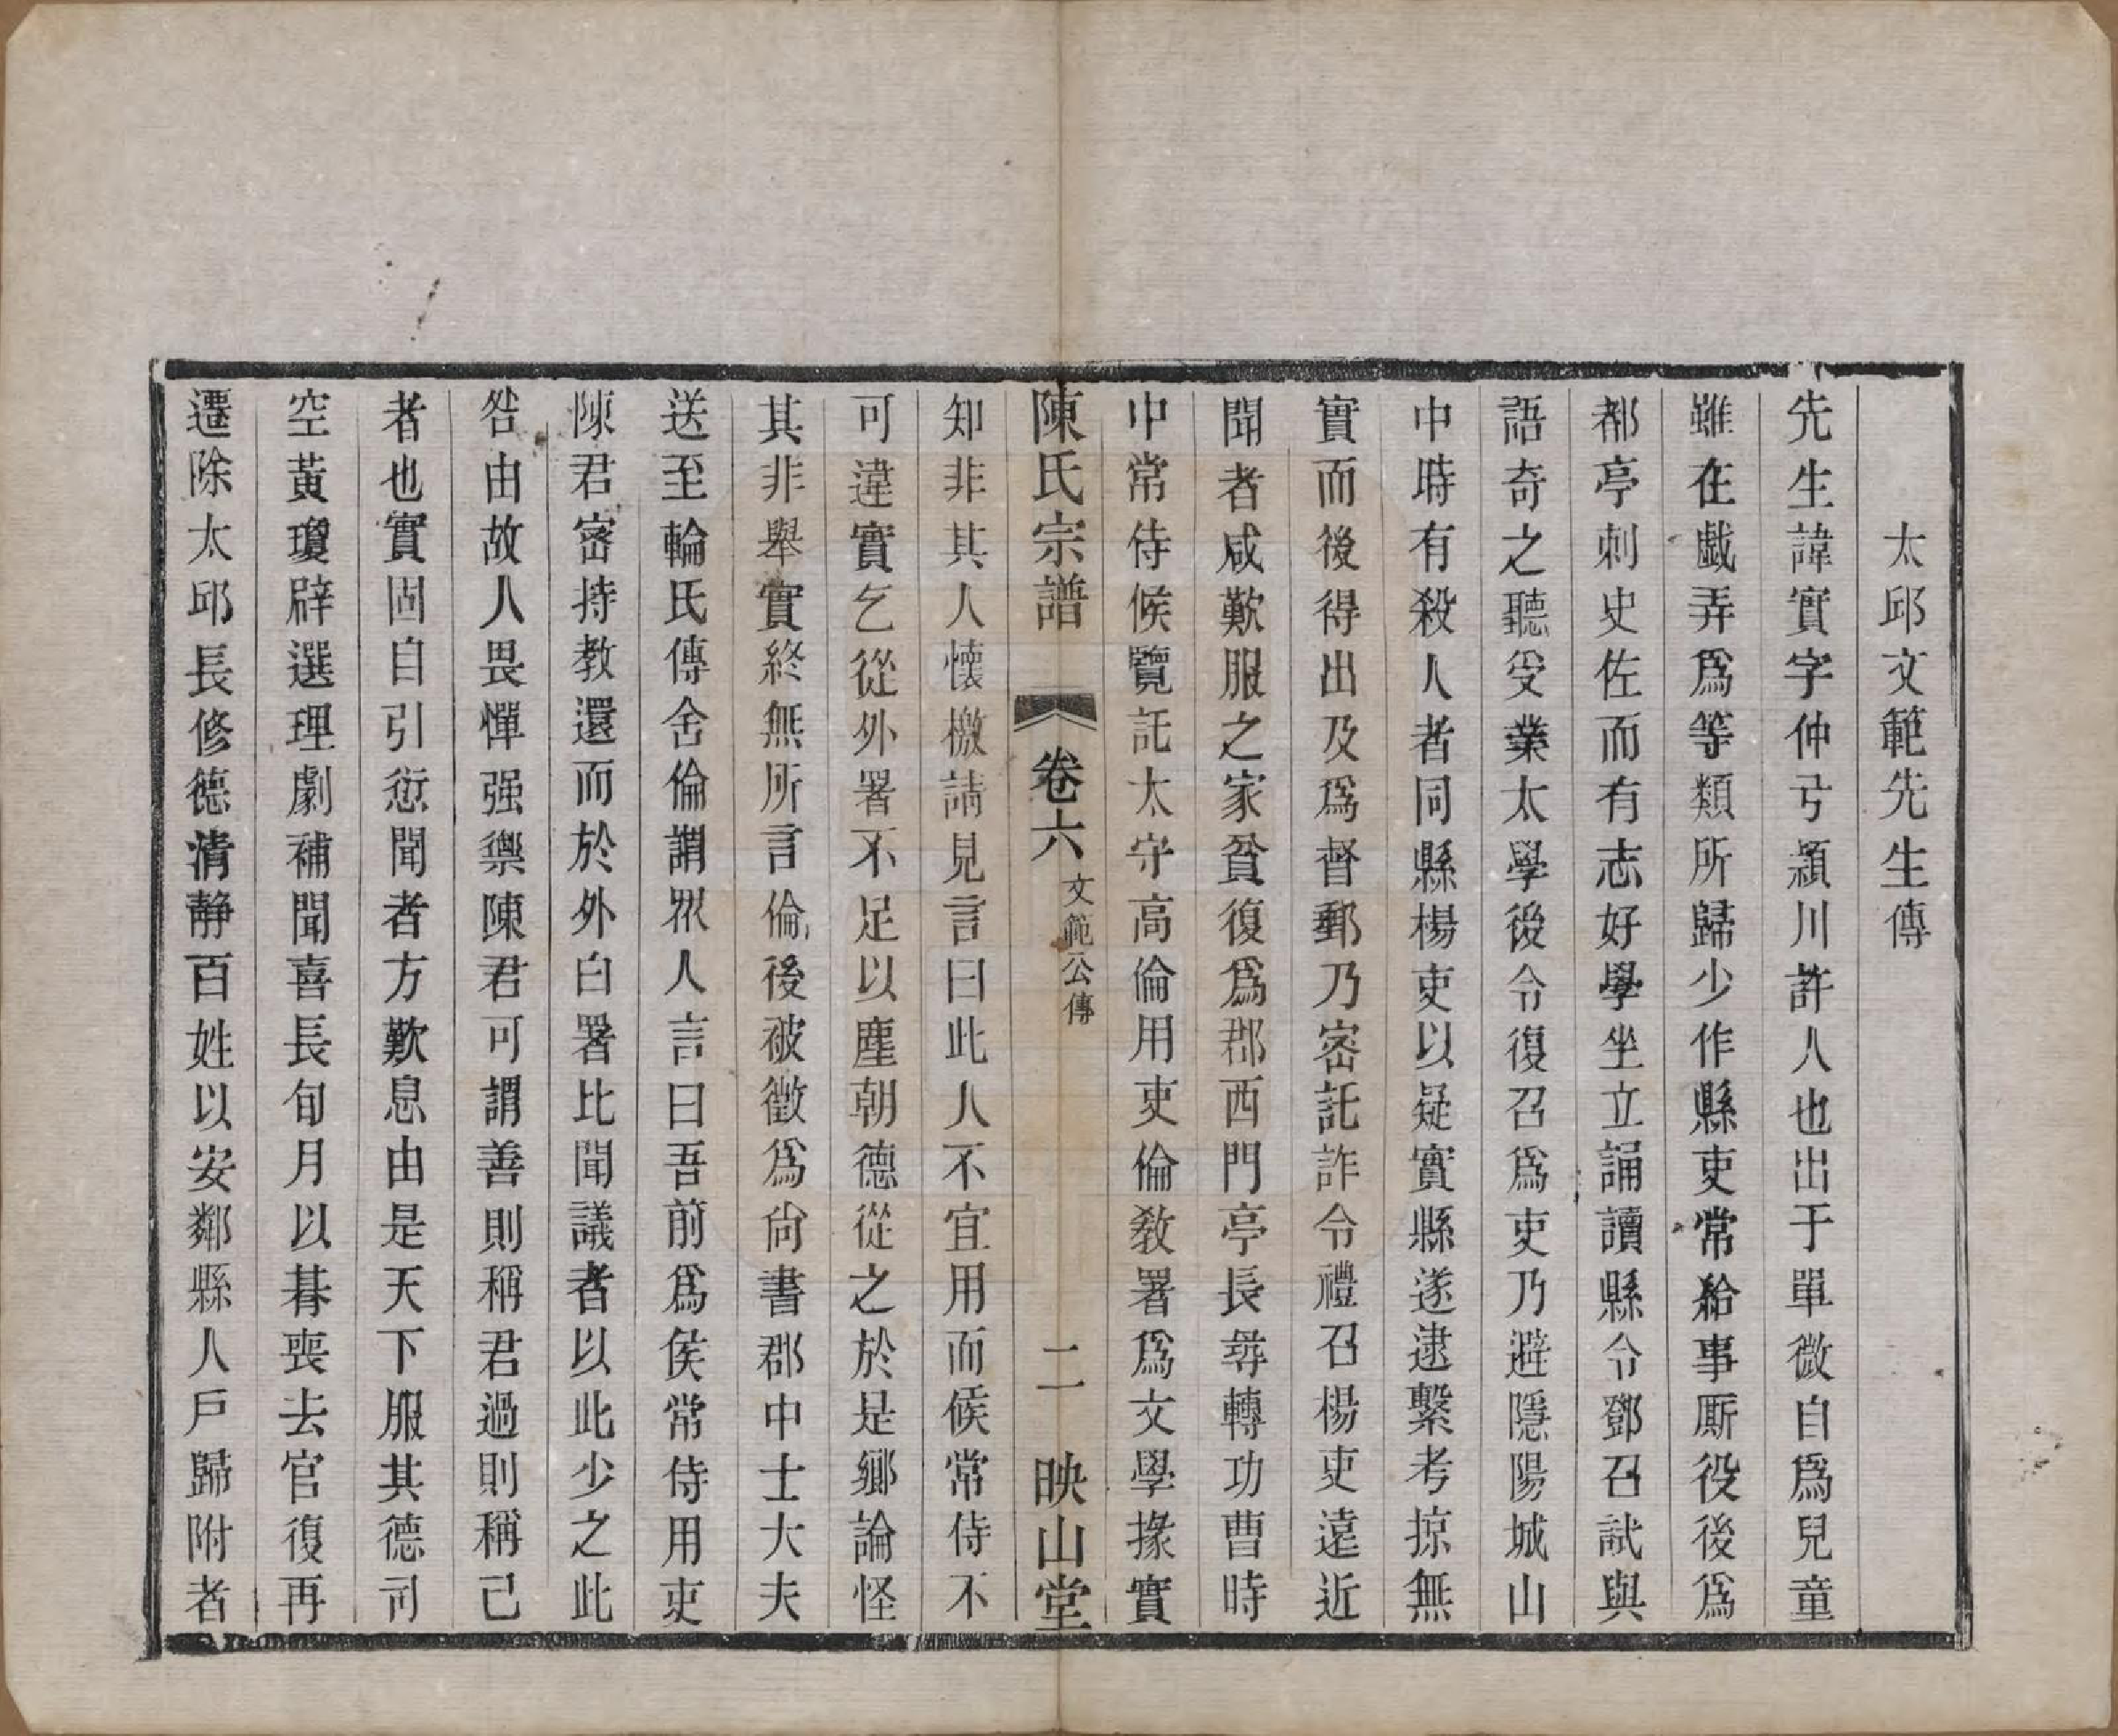 太邱文範先生傳
先生諱實字仲弓潁川許人也出于單微自爲兒童
雖在戲弄爲等類所歸少作縣吏常給事厮役後爲
都亭刺史佐而有志好學坐立誦讀縣令鄧召試與
語奇之聽受業太學後令復召爲吏乃避隱陽城山
中時有殺人者同縣楊吏以疑實縣遂逮繫考掠無
實而後得出及爲督郵乃密託詐令禮召楊吏遠近
聞者咸歎服之家貧復爲郡西門亭長尋轉功曹時
中常侍候覽託太守高倫用吏倫敎署爲文學掾實
陳氏宗譜 卷六 文範公傳 二 映山堂
知非其人懷檄請見言曰此人不宜用而候常侍不
可違實乞從外署不足以塵朝德從之於是鄉論怪
其非舉實終無所言倫後被徵爲尙書郡中士大夫
送至輪氏傳舍倫謂眾人言曰吾前爲侯常侍用吏
陳君密持教還而於外白署比聞議者以此少之此
咎由故人畏憚强禦陳君可謂善則稱君過則稱己
者也實固自引愆聞者方歎息由是天下服其德司
空黃瓊辟選理劇補聞喜長旬月以朞喪去官復再
遷除太邱長修德清靜百姓以安鄰縣人戶歸附者